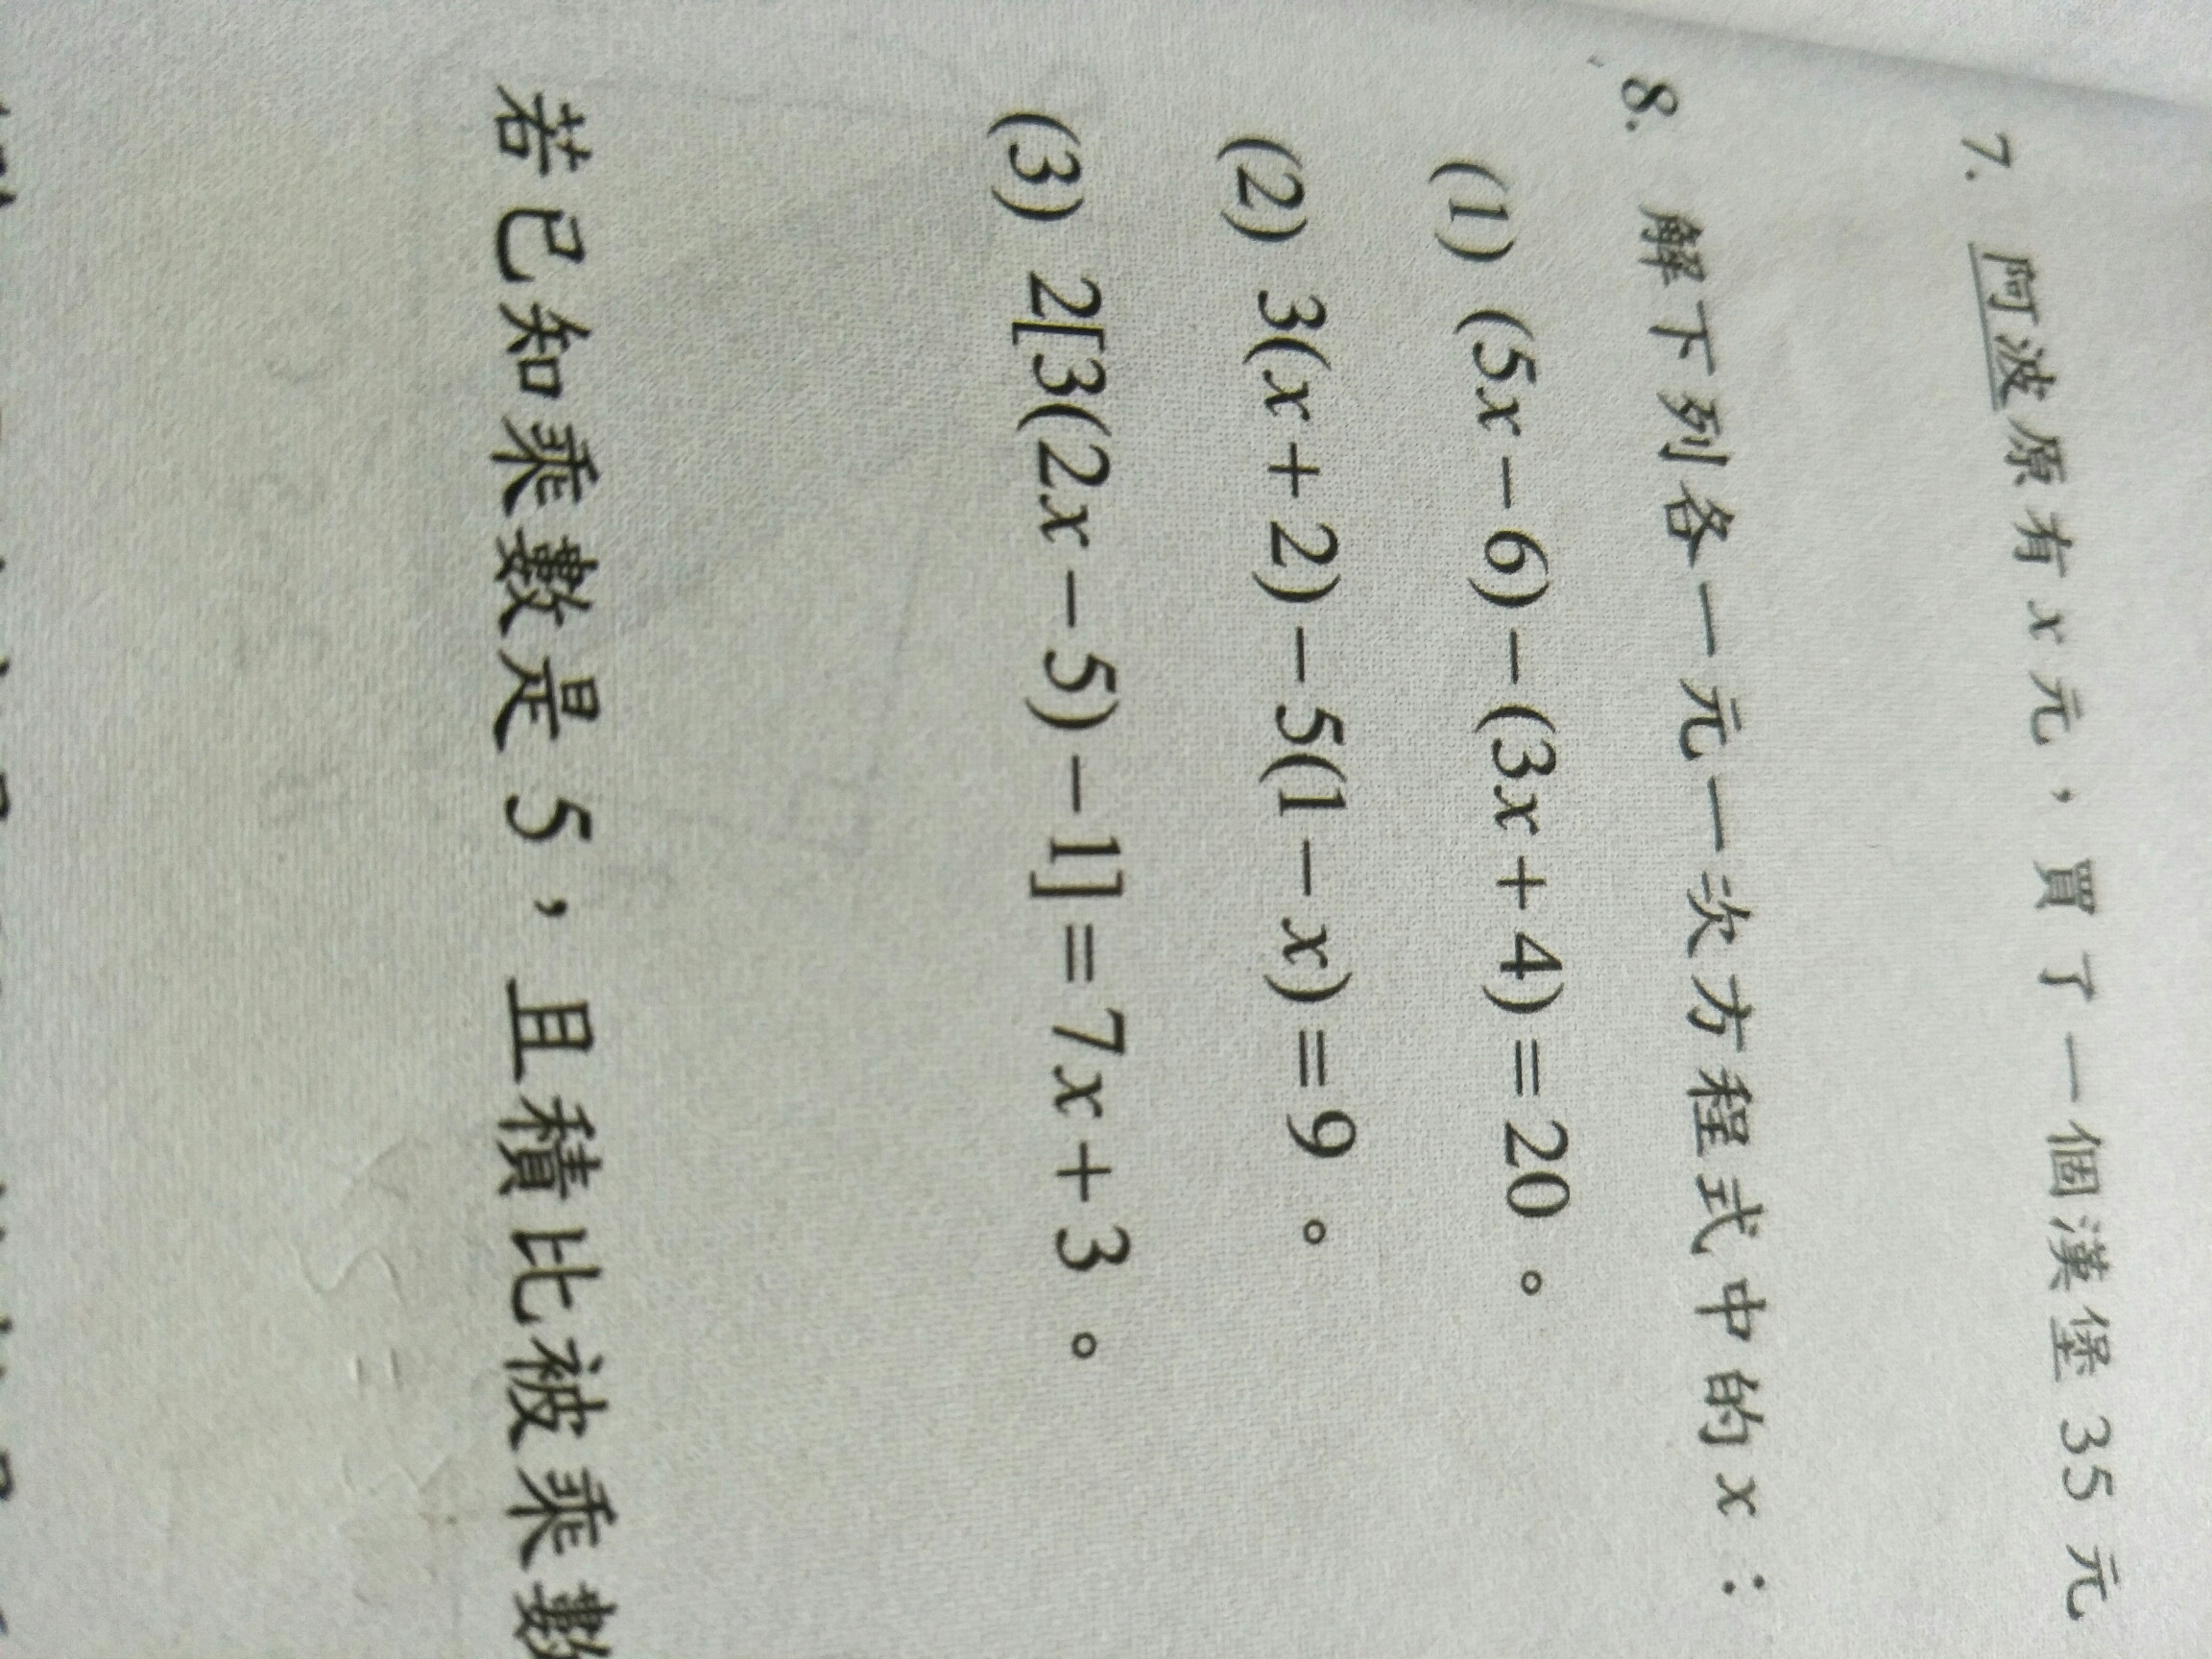 7. 阿波原有 x 元，買了一個漢堡 35 元
8. 解下列各一元一次方程式中的 x：
(1) (5x－6)－(3x＋4)＝20。
(2) 3(x＋2)－5(1－x)＝9。
(3) 2[3(2x－5)－1]＝7x＋3。
若已知乘數是 5，且積比被乘數